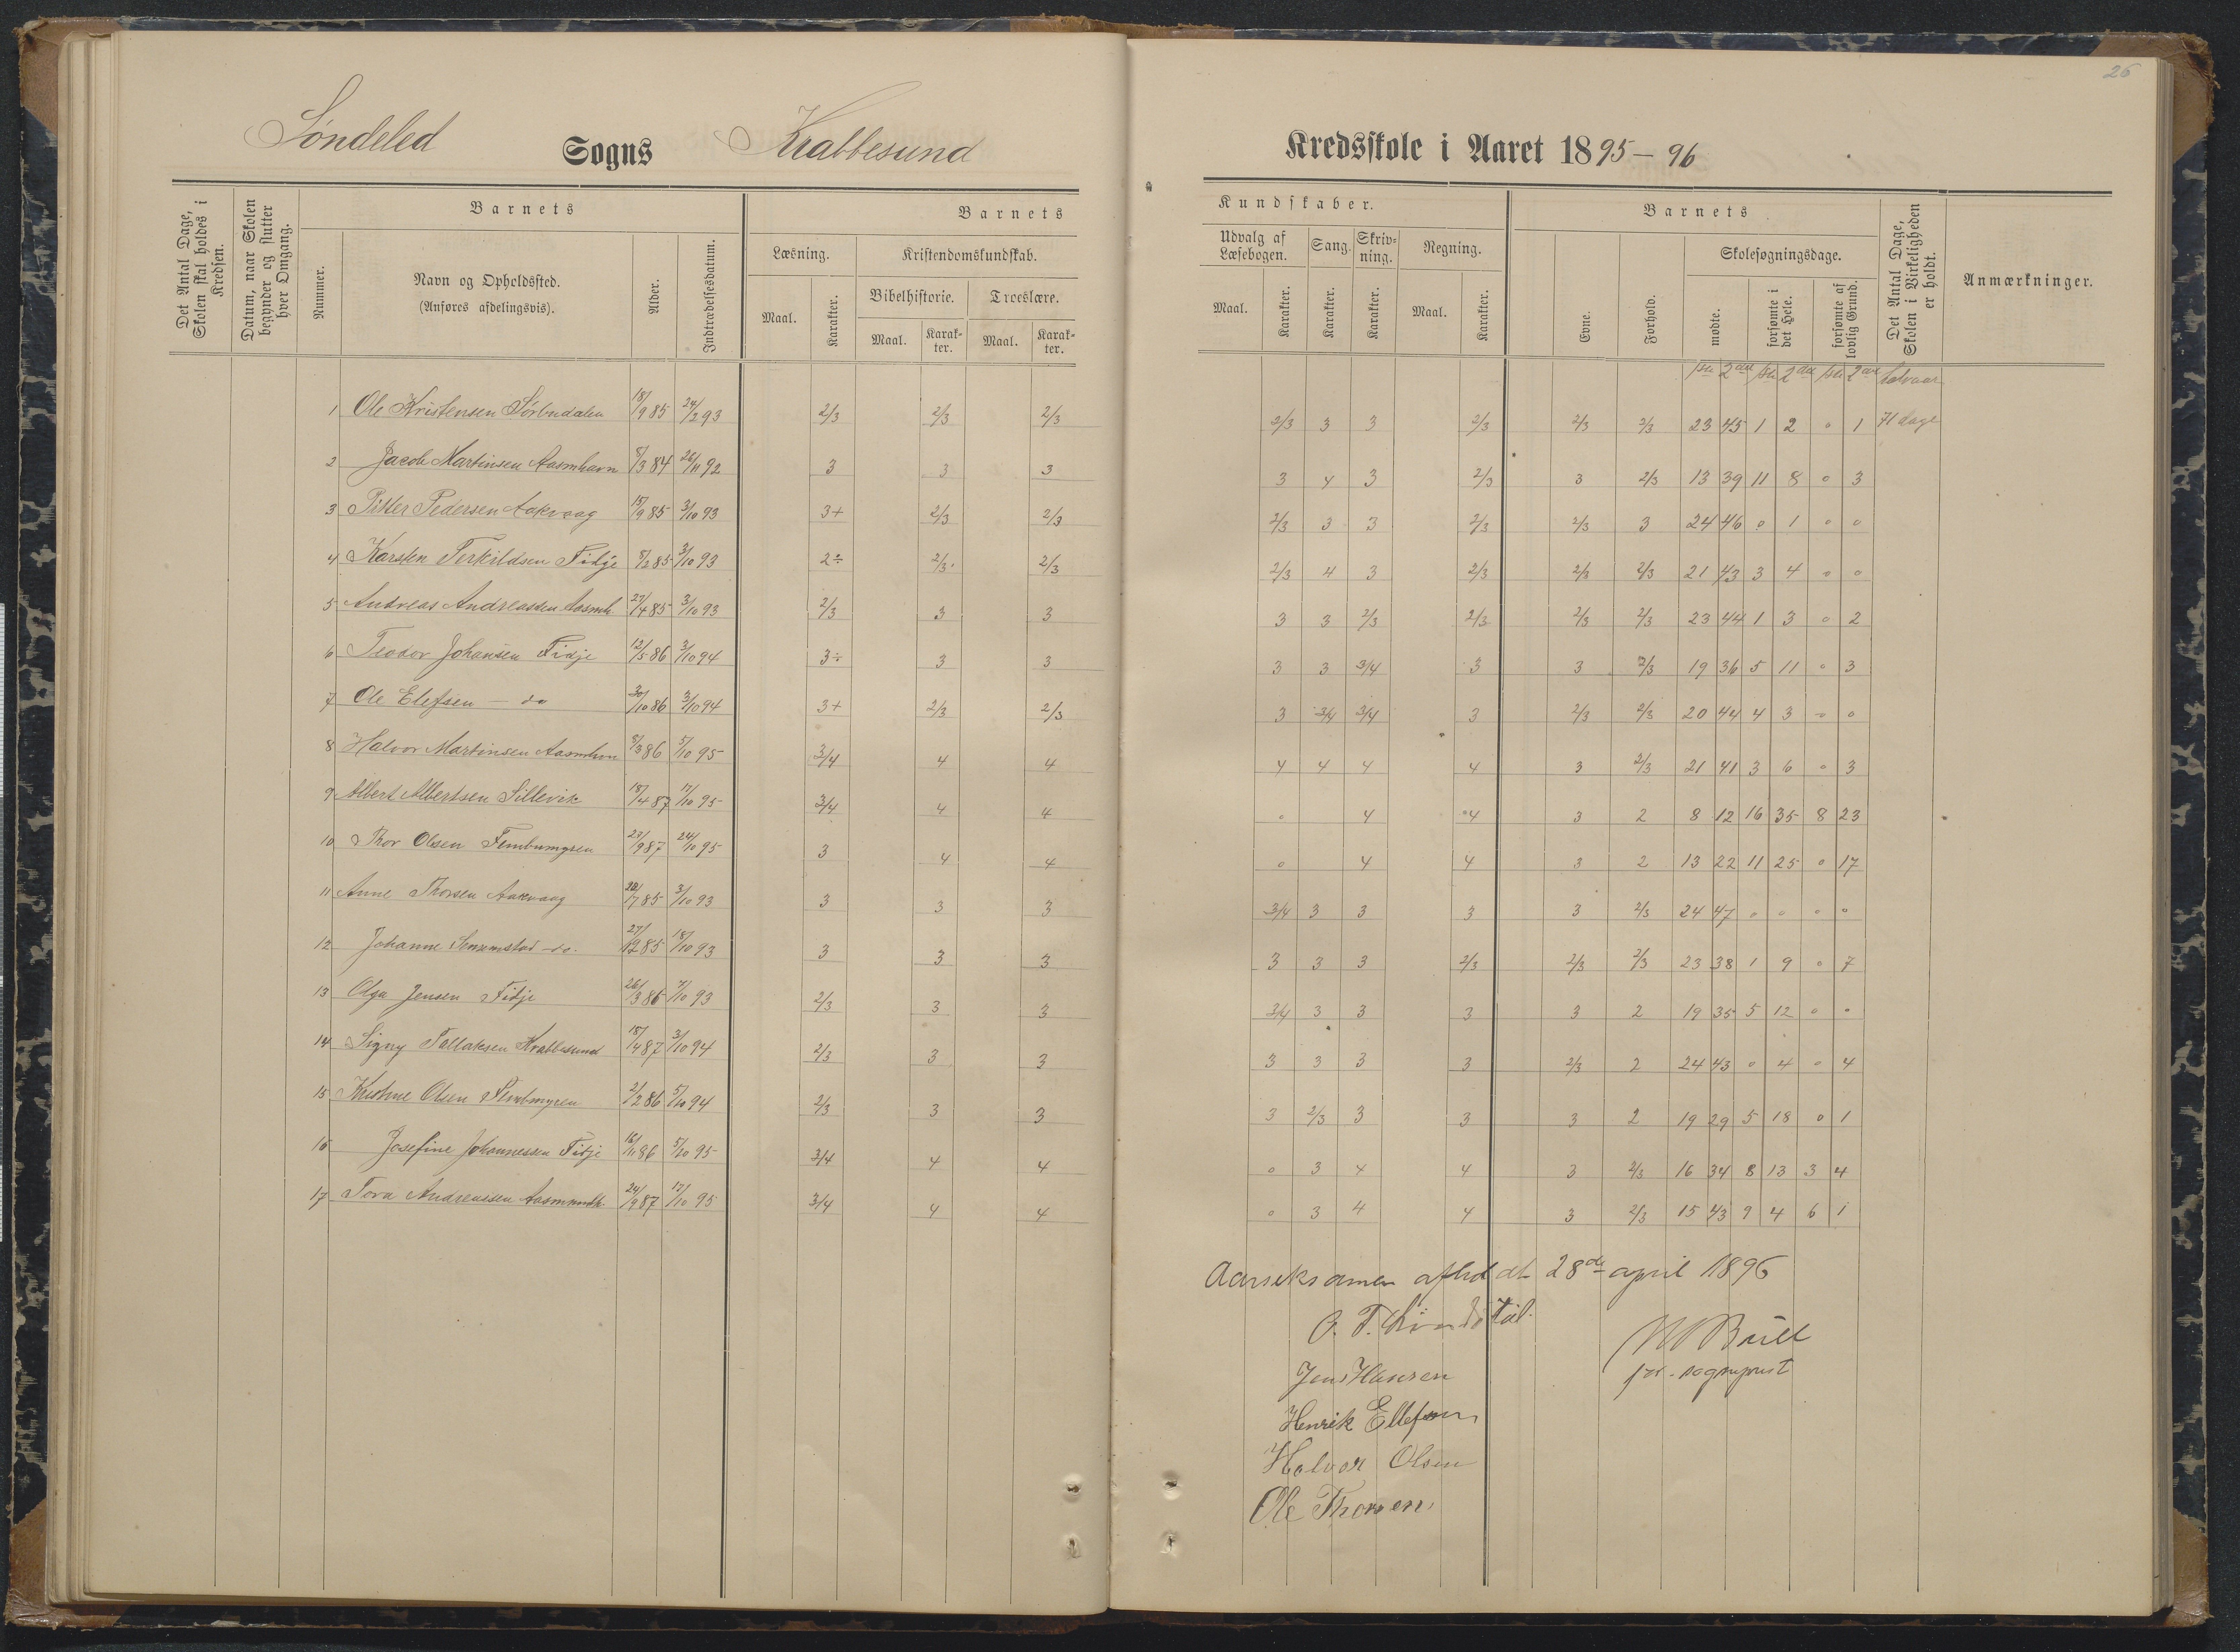 26
Søndeled Sogns Krabbesund Kredsskole i Aaret 1895-96
Det Antal Dage, Skolen skal holdes i Kredsen.
Datum, naar Skolen begynder og slutter hver Omgang.
Barnets
Nummer.
Navn og Opholdssted.
(Anføres afdelingsvis).
Alder.
Indtrædelsesdatum.
Barnets
Læsning.
Maal.
Karakter.
Kristendomskundskab.
Bibelhistorie.
Maal.
Karakter.
Troeslære.
Maal.
Karakter.
Kundskaber.
Udvalg af Læsebogen.
Maal.
Karakter.
Sang.
Karakter.
Skrivning.
Karakter.
Regning.
Maal.
Karakter.
Barnets
Evne.
Forhold.
Skolesøgningsdage.
mødte.
forsømte i det Hele.
forsømte af lovlig Grund.
Det Antal Dage, Skolen i Virkeligheden er holdt.
Anmærkninger.
1ste 2den 1ste 2den 1ste 2den halvaar
1 Ole Kristensen Sørbudalen 18/9 85 24/2 93 2/3 2/3 2/3 2/3 3 3 2/3 2/3 2/3 23 45 1 2 0 1 71 dage
2 Jacob Martinsen Aasmhavn 8/3 84 26/11 92 3 3 3 3 4 3 2/3 3 2/3 13 39 11 8 0 3
3 Pitter Pedersen Aakvaag 15/9 85 3/10 93 3+ 2/3 2/3 2/3 3 3 2/3 2/3 3 24 46 0 1 0 0
4 Karsten Terkildsen Fidje 8/2 85 3/10 93 2÷ 2/3 2/3 2/3 4 3 2/3 2/3 2/3 21 43 3 4 0 0
5 Andreas Andreassen Aasmh. 27/4 85 3/10 93 2/3 3 3 3 3 2/3 2/3 2/3 2/3 23 44 1 3 0 2
6 Teodor Johansen Fidje 12/5 86 3/10 94 3÷ 3 3 3 3 3/4 3 3 2/3 19 36 5 11 0 3
7 Ole Elefsen - do 30/10 86 3/10 94 3+ 2/3 2/3 3 3/4 3/4 3 2/3 2/3 20 44 4 3 0 0
8 Halvor Martinsen Aasmhvn 8/3 86 5/10 95 3/4 4 4 4 4 4 4 3 2/3 21 41 3 6 0 3
9 Albert Albertsen Sillevik 18/4 87 17/10 95 3/4 4 4 0 4 4 3 2 8 12 16 35 8 23
10 Thor Olsen 23/9 87 24/10 95 3 4 4 0 4 4 3 2 13 22 11 25 0 17
11 Anne Thorsen Aakvaag 20/7 85 3/10 93 3 3 3 3/4 3 3 3 3 2/3 24 47 0 0 0 0
12 Johanne -do. 27/12 85 18/10 93 3 3 3 3 3 3 2/3 2/3 2/3 23 38 1 9 0 7
13 Olga Jensen Fidje 26/3 86 7/10 93 2/3 3 3 3/4 3 3 3 3 2 19 35 5 12 0 0
14 Signy Tallaksen Krabbesund 18/4 87 3/10 94 2/3 3 3 3 3 3 3 2/3 2 24 43 0 4 0 4
15 Kristine Olsen 2/2 86 5/10 94 2/3 3 3 3 2/3 3 3 3 2 19 29 5 18 0 1
16 Josefine Johannessen Fidje 16/11 86 5/10 95 3/4 4 4 0 3 4 4 3 2/3 16 34 8 13 3 4
17 Tora Andreassen Aasmundh. 24/9 87 17/10 95 3/4 4 4 0 3 4 4 3 2/3 15 43 9 4 6 1
Aarseksamen afholdt 28de april 1896
O. T.
Bull
Jens Hansen
sogneprest
Henrik Ellefsen
Halvor Olsen
Ole Thorsen